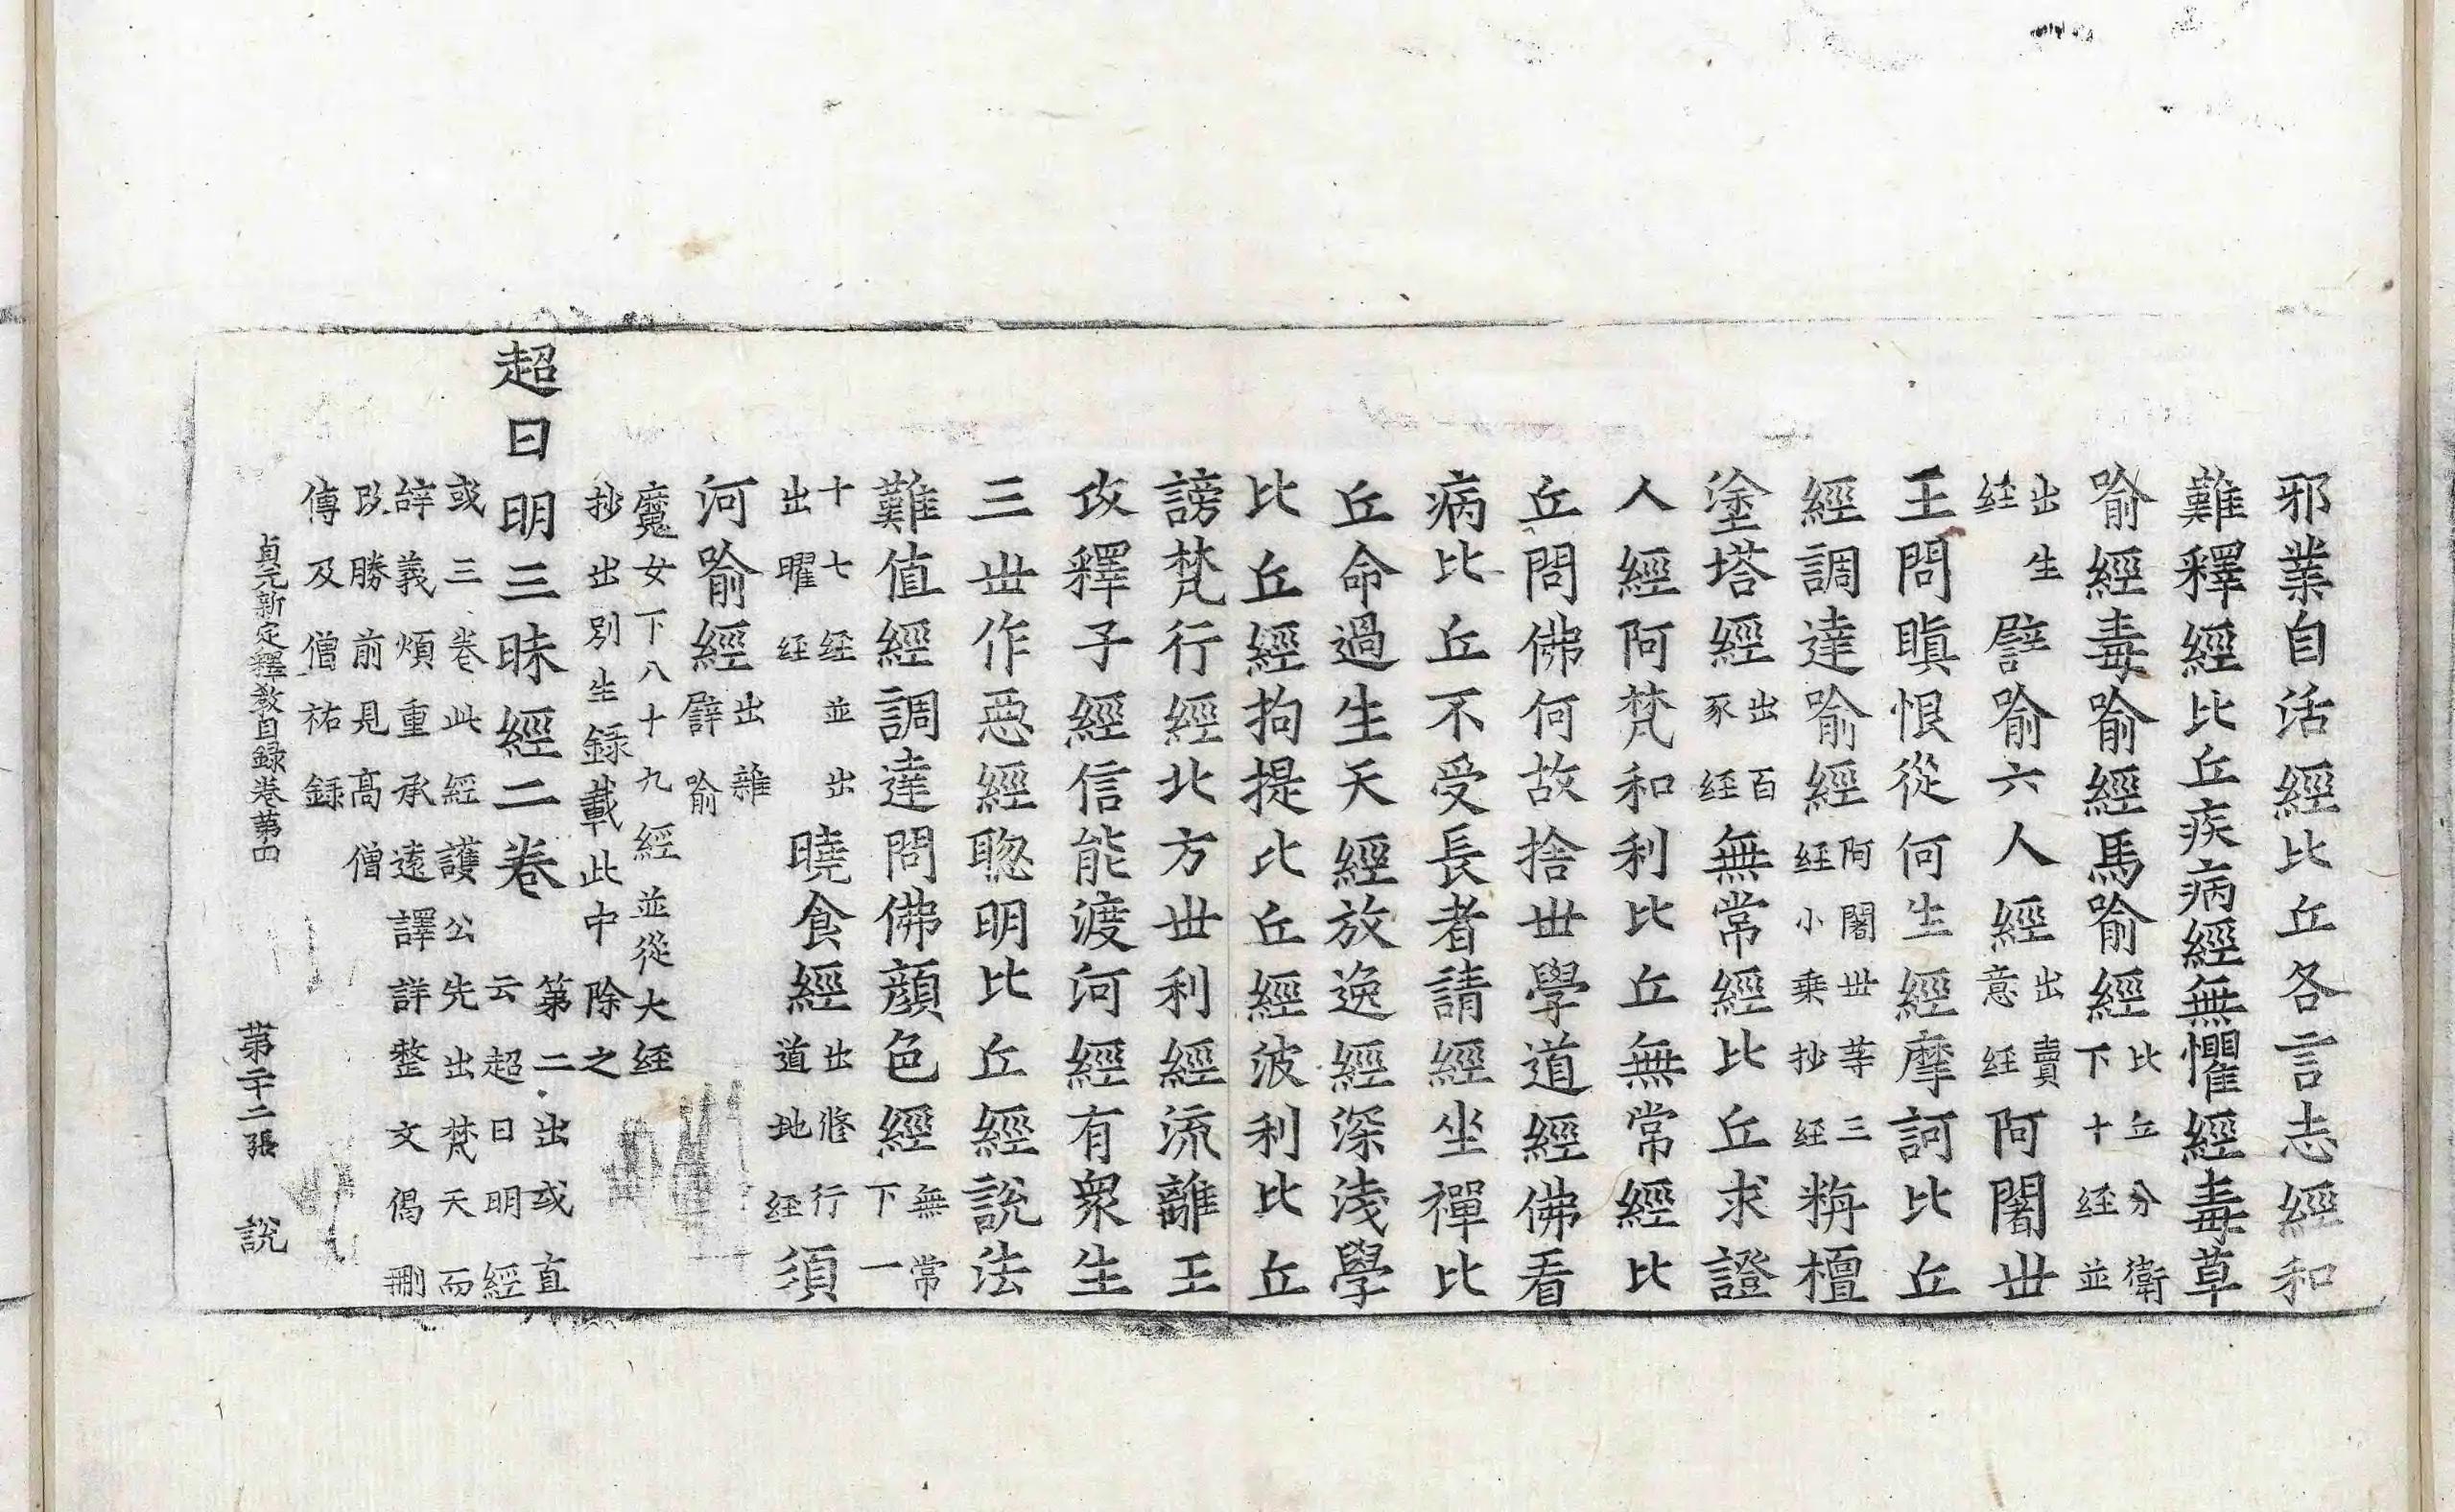 邪業自活經比丘各言志經和
難釋經比丘疾病經無懼經毒草
喻經毒喻經馬喻經比丘分衛下十經並
出生経譬喻六人經出賣意経阿闍丗
王問瞋恨從何生經摩訶比丘
經調達喻經阿闍丗等三経小乗抄経栴檀
塗塔經出百喻経無常經比丘求證
人經阿梵和利比丘無常經比
丘問佛何故捨丗學道經佛看
病比丘不受長者請經坐禪比
丘命過生天經放逸經深淺學
比丘經拘提比丘經波利比丘
謗梵行經北方丗利經流離王
攻釋子經信能渡河經有衆生
三丗作惡經聦明比丘經說法
難值經調達問佛顔色經無常下一
十七経並出出曜経曉食經出脩行道地経須
河喻經出雜譬喻
魔女下八十九經並從大経
抄出別生録載此中除之
超日明三昧經二卷第二出或直云超日明經
或三卷此經護公先出梵天而
辝義煩重承遠譯詳整文偈刪
改勝前見髙僧
傳及僧祐録
貞元新定釋教目録卷苐四 苐二十二張 說